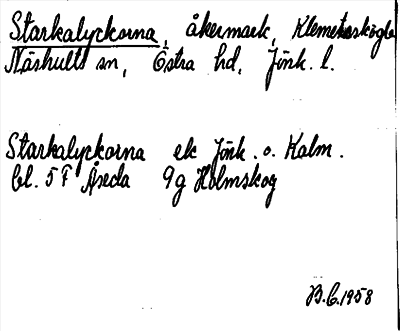 Starkalyckorna, åkermark, Klemetaskögla
Näshults sn, Östra hd, Jönk. l.
Starkalyckorna ek Jönk. o. Kalm.
bl. 5 F Åseda 9g Holmskog
B.C. 1958